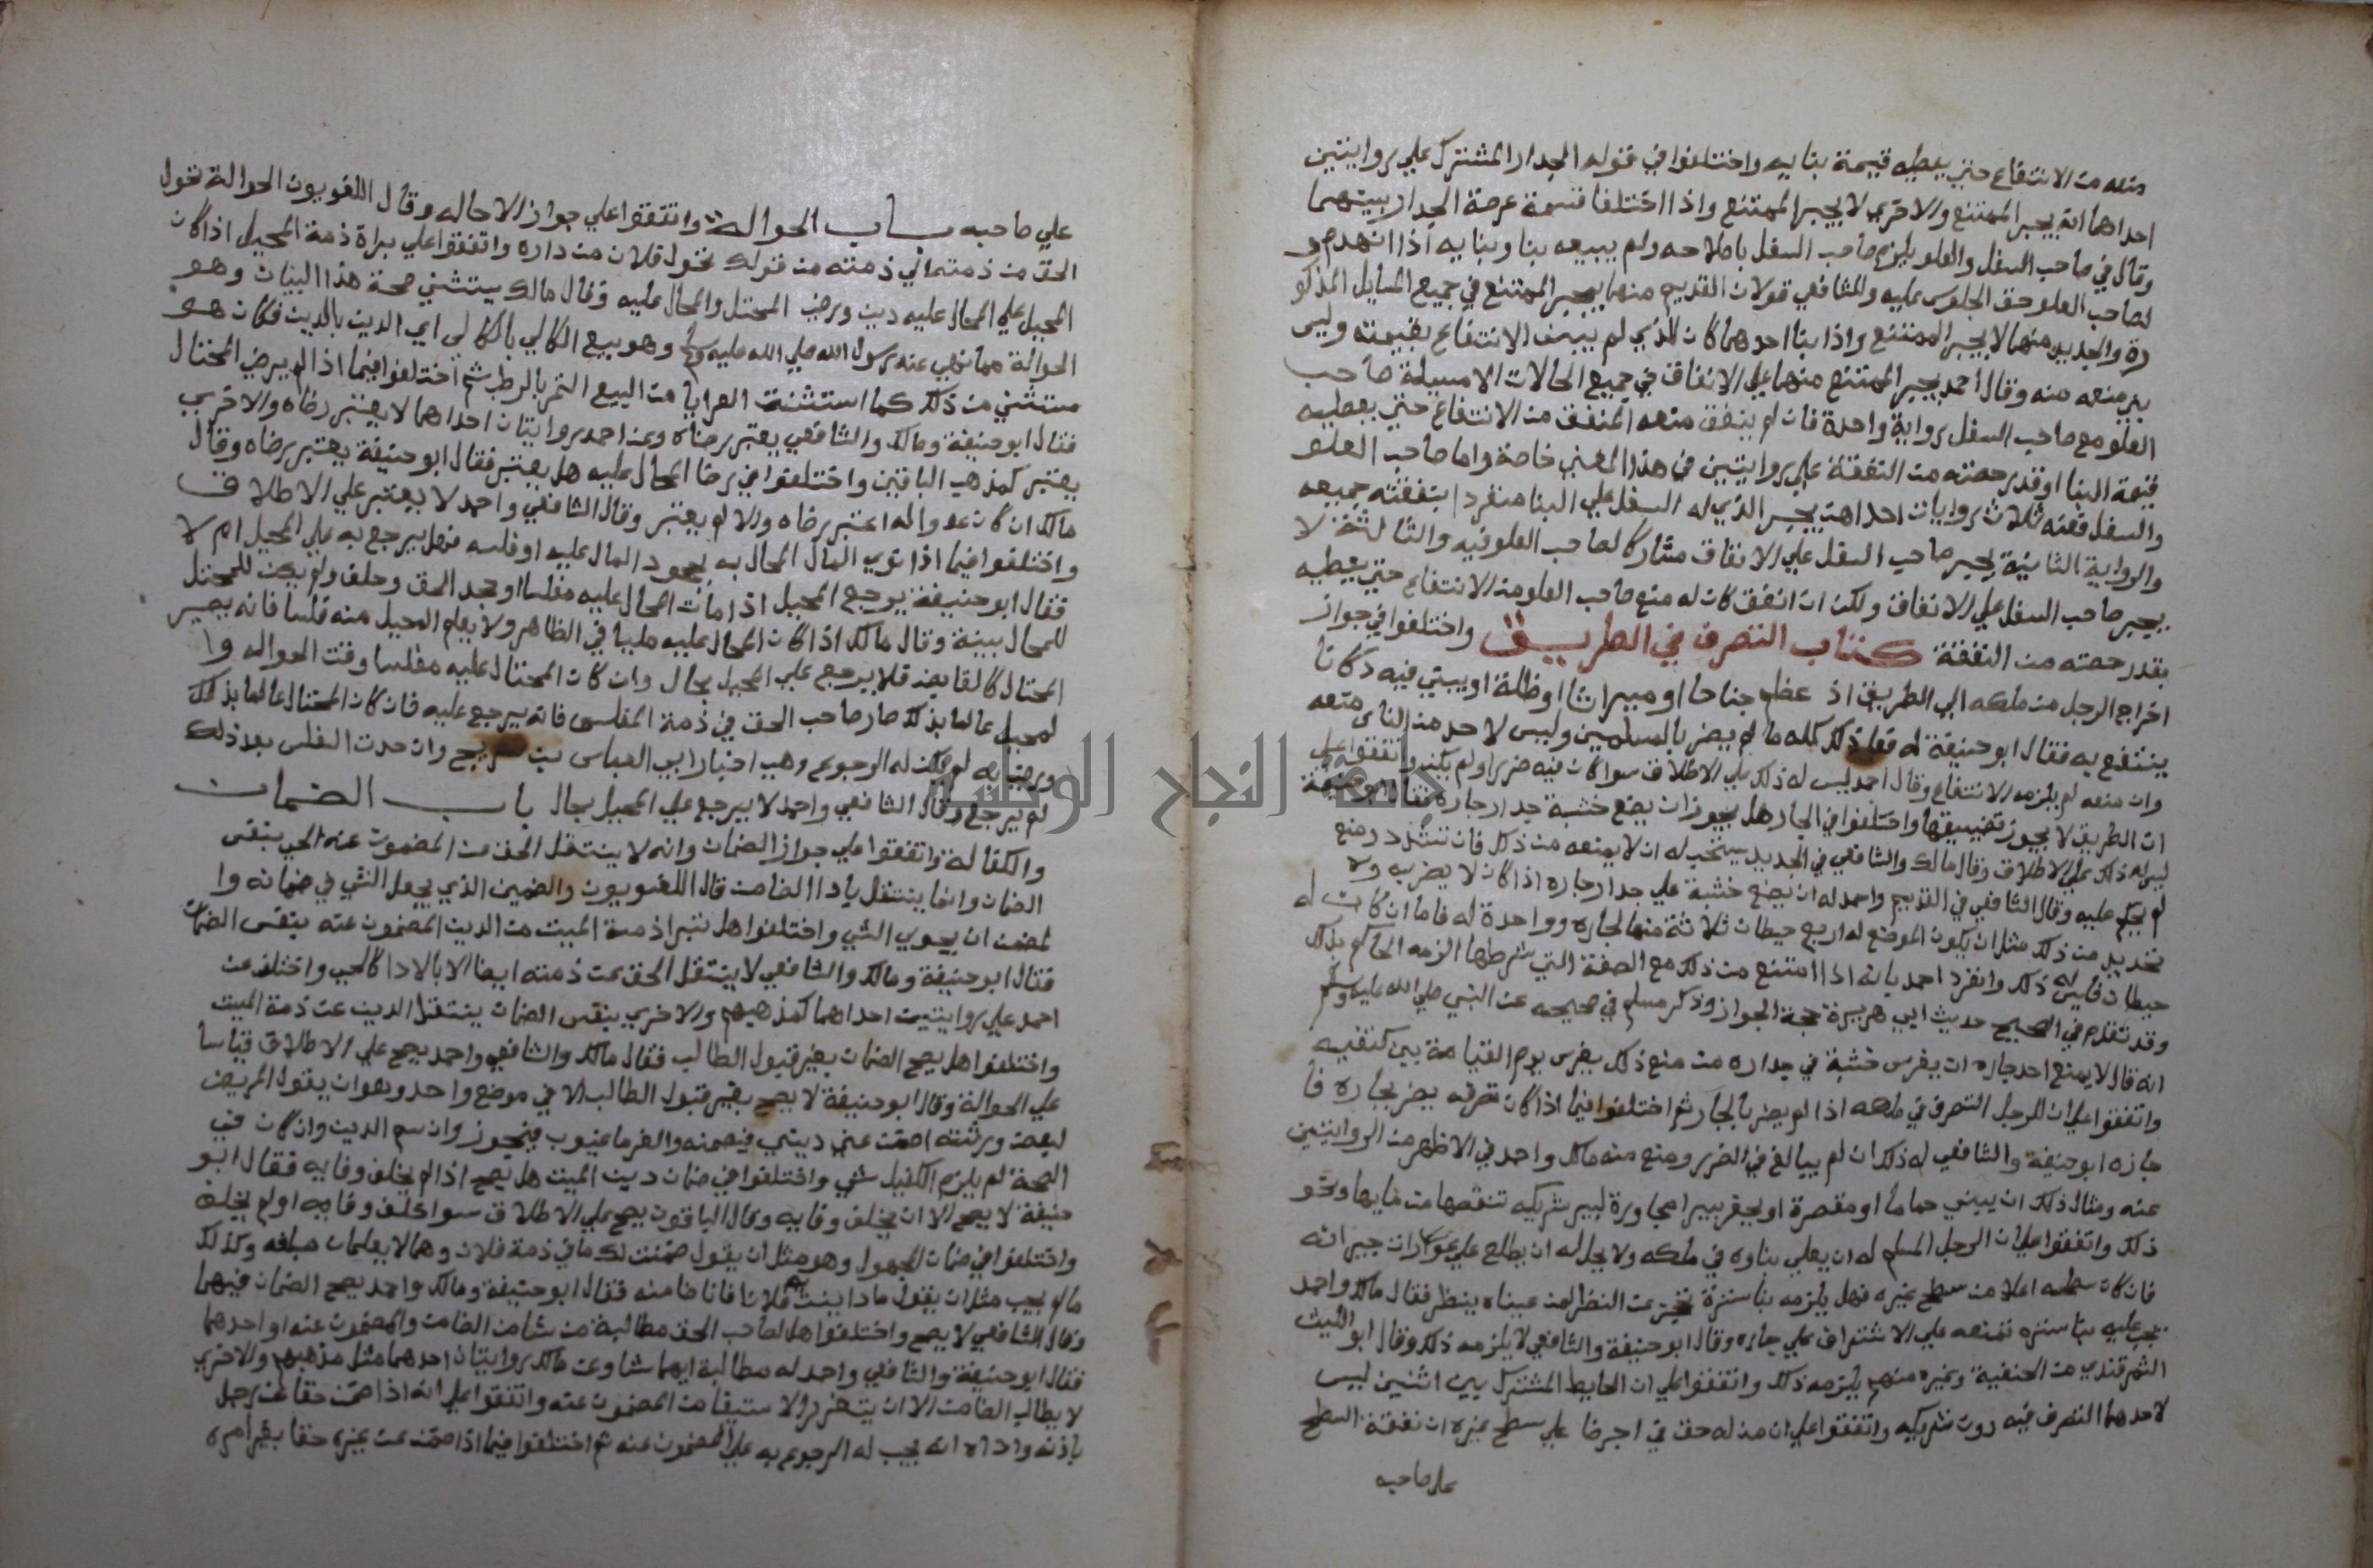 منعه من الانتفاع حتى يعطيه قيمة بنايه واختلفوا في قوله الجدار المشترك علي روايتين
احداهما انه يجبر الممتنع والاخري لا يجبر الممتنع واذا اختلفا قسمة عرصة الجدار بينهما
وقال في صاحب السفل والعلو يلزم صاحب السفل باصلاحه ولم يبيعه بنا وبنايه اذا انهدم و
لصاحب العلو حق الجلوس عليه وللشافعي قولان القديم منهما يجبر الممتنع في جميع المسايل المذكو
رة والجديد منهما لا يجبر الممتنع واذا بنا احدهما كان للذي لم يبن الانتفاع بقيمته وليس
يمنعه منه وقال احمد يجبر الممتنع منهما علي الانفاق في جميع الحالات الا مسيلة صاحب
العلو مع صاحب السفل رواية واحدة فان لم ينفق منعه المنفق من الانتفاع حتى يعطيه
قيمة البنا او قدر حصته من النفقة علي روايتين في هذا المعني خاصة واما صاحب العلو
والسفل فعنه ثلاث روايات احداهن يجبر الذي له السفل علي البنا منفردا بنفقته جميعه
والرواية الثانية يجبر صاحب السفل علي الانفاق مشاركا لصاحب العلو فيه والثالثة لا
يجبر صاحب السفل علي الانفاق ولكن ان انفق كان له منع صاحب العلو من الانتفاع حتى يعطيه
بقدر حصته من النفقة كتاب التصرف في الطريق واختلفوا في جواز
اخراج الرجل من ملكه الي الطريق اذ عظم جناحا او ميراثا او ظلة او يبني فيه دكانا
ينتفع به فقال ابو حنيفة له فعل ذلك كله ما لم يضر بالمسلمين وليس لاحد من الناس منعه
وان منعه لم يلزمه الانتفاع وقال احمد ليس له ذلك علي الاطلاق سوا كان فيه ضرر او لم يكن واتفقوا علي
ان الطريق لا يجوز تضييقها واختلفوا في الجار هل يجوز ان يضع خشبة جدار جاره فقال ابو حنيفة
ليس له ذلك علي الاطلاق وقال مالك والشافعي في الجديد يستحب له ان لا يمنعه من ذلك فان تشدد ومنع
لم يحكم عليه وقال الشافعي في القديم واحمد له ان يضع خشبة علي جدار جاره اذا كان لا يضر به ولا
تحديد من ذلك مثل ان يكون الموضع له اربع حيطان ثلاثة منها لجاره وواحدة له فاما ان كانت له
حيطان فليس له ذلك وانفرد احمد بانه اذا امتنع من ذلك مع الصفة التي شرطها الزمه الحاكم بذلك
وقد تقدم في الصحيح حديث ابي هريرة حجة الجواز وذكر مسلم في صحيحه عن النبي صلي الله عليه وسلم
انه قال لا يمنع احد جاره ان يغرس خشبة في جداره من منع ذلك يغرس يوم القيامة بين كتفيه
واتفقوا علي ان للرجل التصرف في ملكه اذا لم يضر بالجار ثم اختلفوا فيما اذا كان تصرفه يضر بجاره فا
جازه ابو حنيفة والشافعي له ذلك ان لم يبالغ في الضرر ومنع منه مالك واحمد في الاظهر من الروايتين
عنه ومثال ذلك ان يبني حماما او مقصرة او يحفر بيرا مجاورة لبير شريكه تنقصها من مايها ونحو
ذلك واتفقوا علي ان الرجل المسلم له ان يعلي بناوه في ملكه ولا يحل له ان يطلع علي عورات جيرانه
فان كان سطحه اعلا من سطح غيره فهل يلزمه بنا سترة تحجز عن النظر لمن عيناه ينظر فقال مالك واحمد
يجب عليه بنا ستره تمنعه علي الاشتراف علي جاره وقال ابو حنيفة والشافعي لا يلزمه ذلك وقال ابو الليث
الثمرقندي من الحنفية وغيره منهم يلزمه ذلك واتفقوا علي ان الحايط المشترك بين اثنين ليس
لاحدهما التصرف فيه دون شريكه واتفقوا علي ان من له حق في اجرضا علي سطح غيره ان نفقة السطح
علي صاحبه
علي صاحبه باب الحوالة واتفقوا علي جواز الاحاله وقال اللغويون الحوالة تحول
الحق من ذمة الي ذمته من قولك تحول فلان من داره واتفقوا علي براة ذمة المحيل اذا كان
المحيل علي المحال عليه دين ورضي المحتل والمحال عليه وقال مالك يستثني صحة هذا البيان وهو
الحوالة مما نهي عنه رسول الله صلي الله عليه وسلم وهو بيع الكالي بالكالي اي الدين بالدين فكان هو
مستثني من ذلك كما استثنت العرايا من البيع الثمر بالرطب ثم اختلفوا فيما اذا لم يرضي المحتال
فقال ابو حنيفة ومالك والشافعي يعتبر رضاه وعن احمد روايتان احداهما لا يعتبر رضاه والاخري
يعتبر كمذهب الباقين واختلفوا في رضا المحال عليه هل يعتبر فقال ابو حنيفة يعتبر رضاه وقال
مالك ان كان عدوا له اعتبر رضاه والا لم يعتبر وقال الشافعي واحمد لا يعتبر علي الاطلاق
واختلفوا فيما اذا توي المال المحال به بجحود المال عليه او فلسه فهل يرجع به علي المحيل ام لا
فقال ابو حنيفة يرجع المحيل اذا مات المحال عليه مفلسا او جحد الحق وحلف ولم يكن للمحتل
للمحال بينة وقال مالك اذا كان المحال عليه مليا في الظاهر ولا يعلم المحيل منه فلسا فانه يصير
المحتال كالقابض فلا يرجع علي المحيل بحال وان كان المحتال عليه مفلسا وقت الحواله وا
لمحيل عالما بذلك صار صاحب الحق في ذمة المفلس فانه يرجع عليه فان كان المحتال عالما بذلك
ورضي به لم يكن له الرجوع وهي اختيار ابي العباس بن سريج وان حدث الفلس بعد ذلك
لم يرجع وقال الشافعي واحمد لا يرجع علي المحيل بحال باب الضمان
والكفالة واتفقوا علي جواز الضمان وانه لا ينتقل الحق من المضمون عنه الحي بنفس
الضمان وانما ينتقل بادا الضامن قال اللغويون والضمين الذي يجعل الشي في ضمانه وا
لضمن ان يحوي الشي واختلفوا هل تبرا ذمة الميت من الدين المضمون عنه بنفس الضمان
فقال ابو حنيفة ومالك والشافعي لا ينتقل الحق عن ذمته ايضا الا بالادا كالحي واختلف عن
احمد علي روايتين احداهما كمذهبهم والاخري بنفس الضمان ينتقل الدين عن ذمة الميت
واختلفوا هل يصح الضمان بغير قبول الطالب فقال مالك والشافعي واحمد يصح علي الاطلاق قياسا
علي الحوالة وقال ابو حنيفة لا يصح بغير قبول الطالب الا في موضع واحد وهو ان يقول المريض
لبعض ورثته اضمن عني ديني فيضمنه والغرما غيوب فيجوز وان سم الدين وان كان في
الصحة لم يلزم الكفيل شي واختلفوا في ضمان دين الميت هل يصح اذا لم يخلف وفايه فقال ابو
حنيفة لا يصح الا ان يخلف وفايه وقال الباقون يصح علي الاطلاق سوا خلف وفايه او لم يخلفه
واختلفوا في ضمان المجهول وهو مثل ان يقول ضمنت لك ما في ذمة فلان وهما لا يعلمان مبلغه وكذلك
ما لم يجب مثل ان يقول ما داينت فلانا فانا ضامنه فقال ابو حنيفة ومالك واحمد يصح الضمان فيهما
وقال الشافعي لا يصح واختلفوا هل لصاحب الحق مطالبة من شا من الضامن والمضمون عنه او احدهما
فقال ابو حنيفة والشافعي واحمد له مطالبة ايهما شا وعن مالك روايتان احدهما مثل مذهبهم والاخري
لا يطالب الضامن الا ان يتعذر الاستيفا من المضمون عنه واتفقوا علي انه اذا ضمن حقا عن رجل
باذنه واداه انه يجب له الرجوع به علي المضمون عنه ثم اختلفوا فيما اذا ضمن عن غيره حقا بغير امره
جامعة النجاح الوطنية